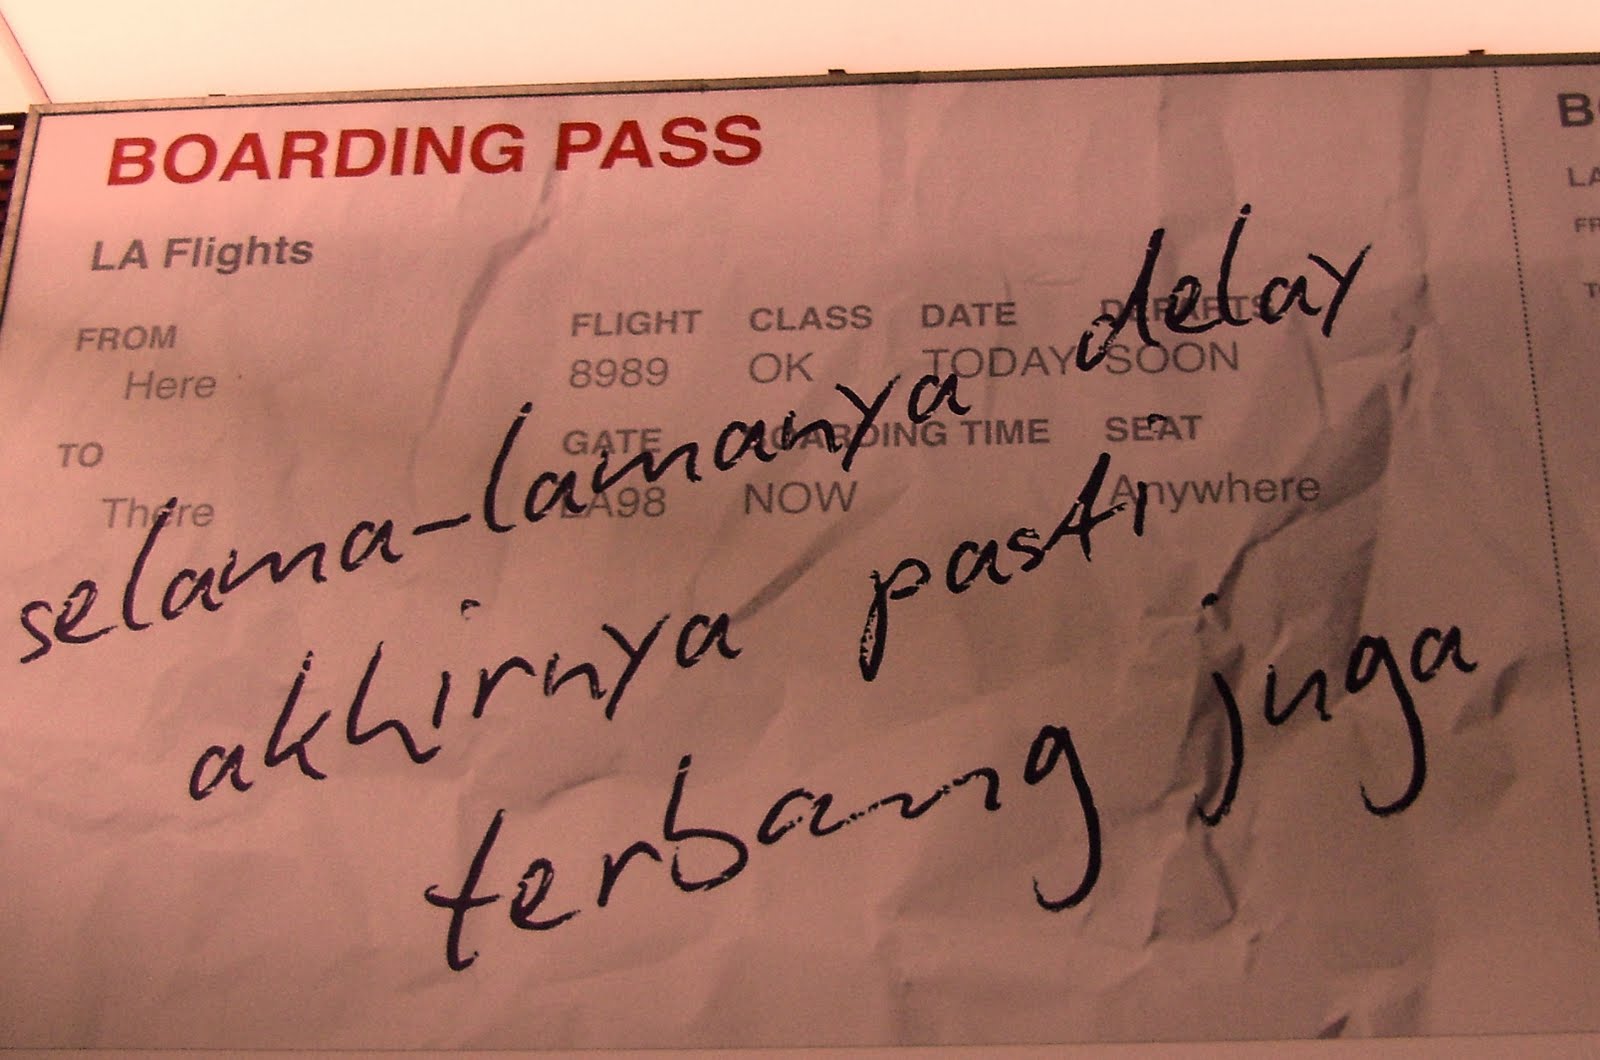 BOARDING PASS
LA Flights
FROM
Here
TO
There
FLIGHT CLASS DATE DEPARTS
8989 OK TODAY SOON
GATE BOARDING TIME SEAT
LA98 NOW Anywhere
selama-lamanya delay
akhirnya pasti
terbang juga